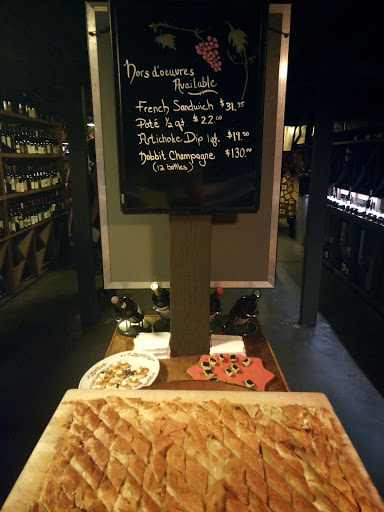 Hors d'oeuvres
Available
French Sandwich $31.75
Paté ½ qt. $22.00
Artichoke Dip 1qt. $19.50
Hobbit Champagne $130.00
(12 bottles)